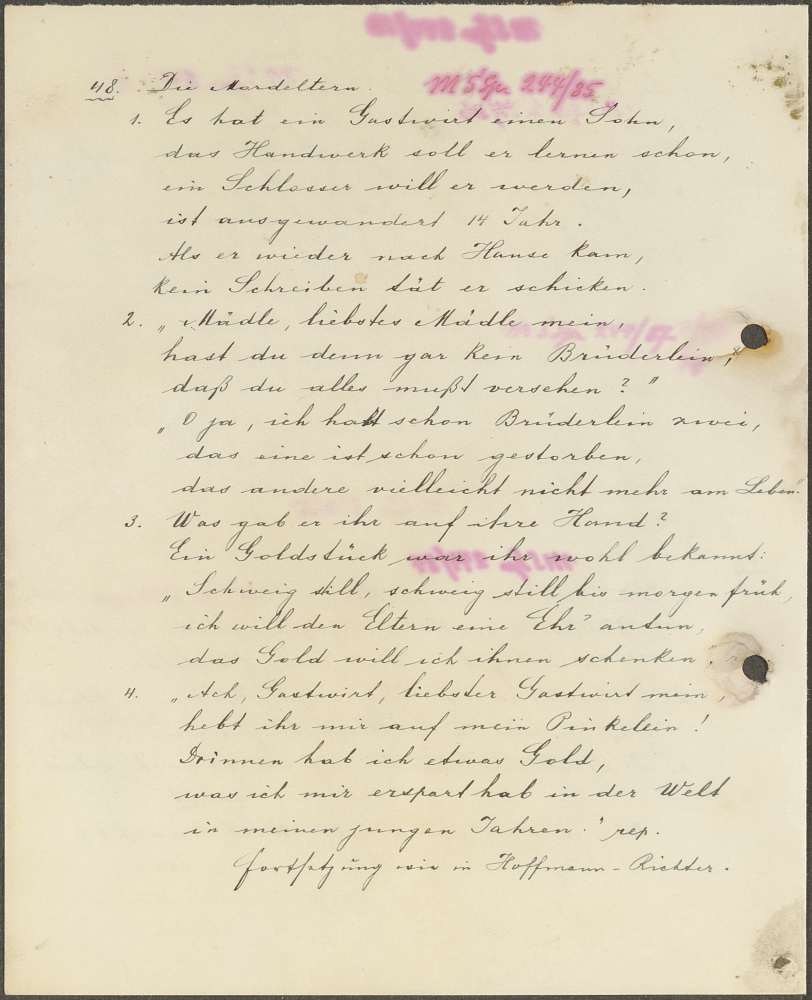 48. Die Mordeltern. MS Gr. 244/85
1. Es hat ein Gastwirt einen Sohn,
das Handwerk soll er lernen schon,
ein Schlosser will er werden,
ist ausgewandert 14 Jahr.
Als er wieder nach Hause kam,
kein Schreiben tät er schicken.
2. „Mädle, liebstes Mädle mein,
hast du denn gar kein Brüderlein,
daß du alles mußt versehen?"
„O ja, ich hatt schon Brüderlein zwei,
das eine ist schon gestorben,
das andere vielleicht nicht mehr am Leben."
3. Was gab er ihr auf ihre Hand?
Ein Goldstück war ihr wohl bekannt:
„Schweig still, schweig still bis morgen früh,
ich will den Eltern eine Ehr' antun,
das Gold will ich ihnen schenken."
4. „Ach, Gastwirt, liebster Gastwirt mein,
hebt ihr mir auf mein Pinkelein!
Drinnen hab ich etwas Gold,
was ich mir erspart hab in der Welt
in meinen jungen Jahren." rep.
Fortsetzung wie in Hoffmann-Richter.